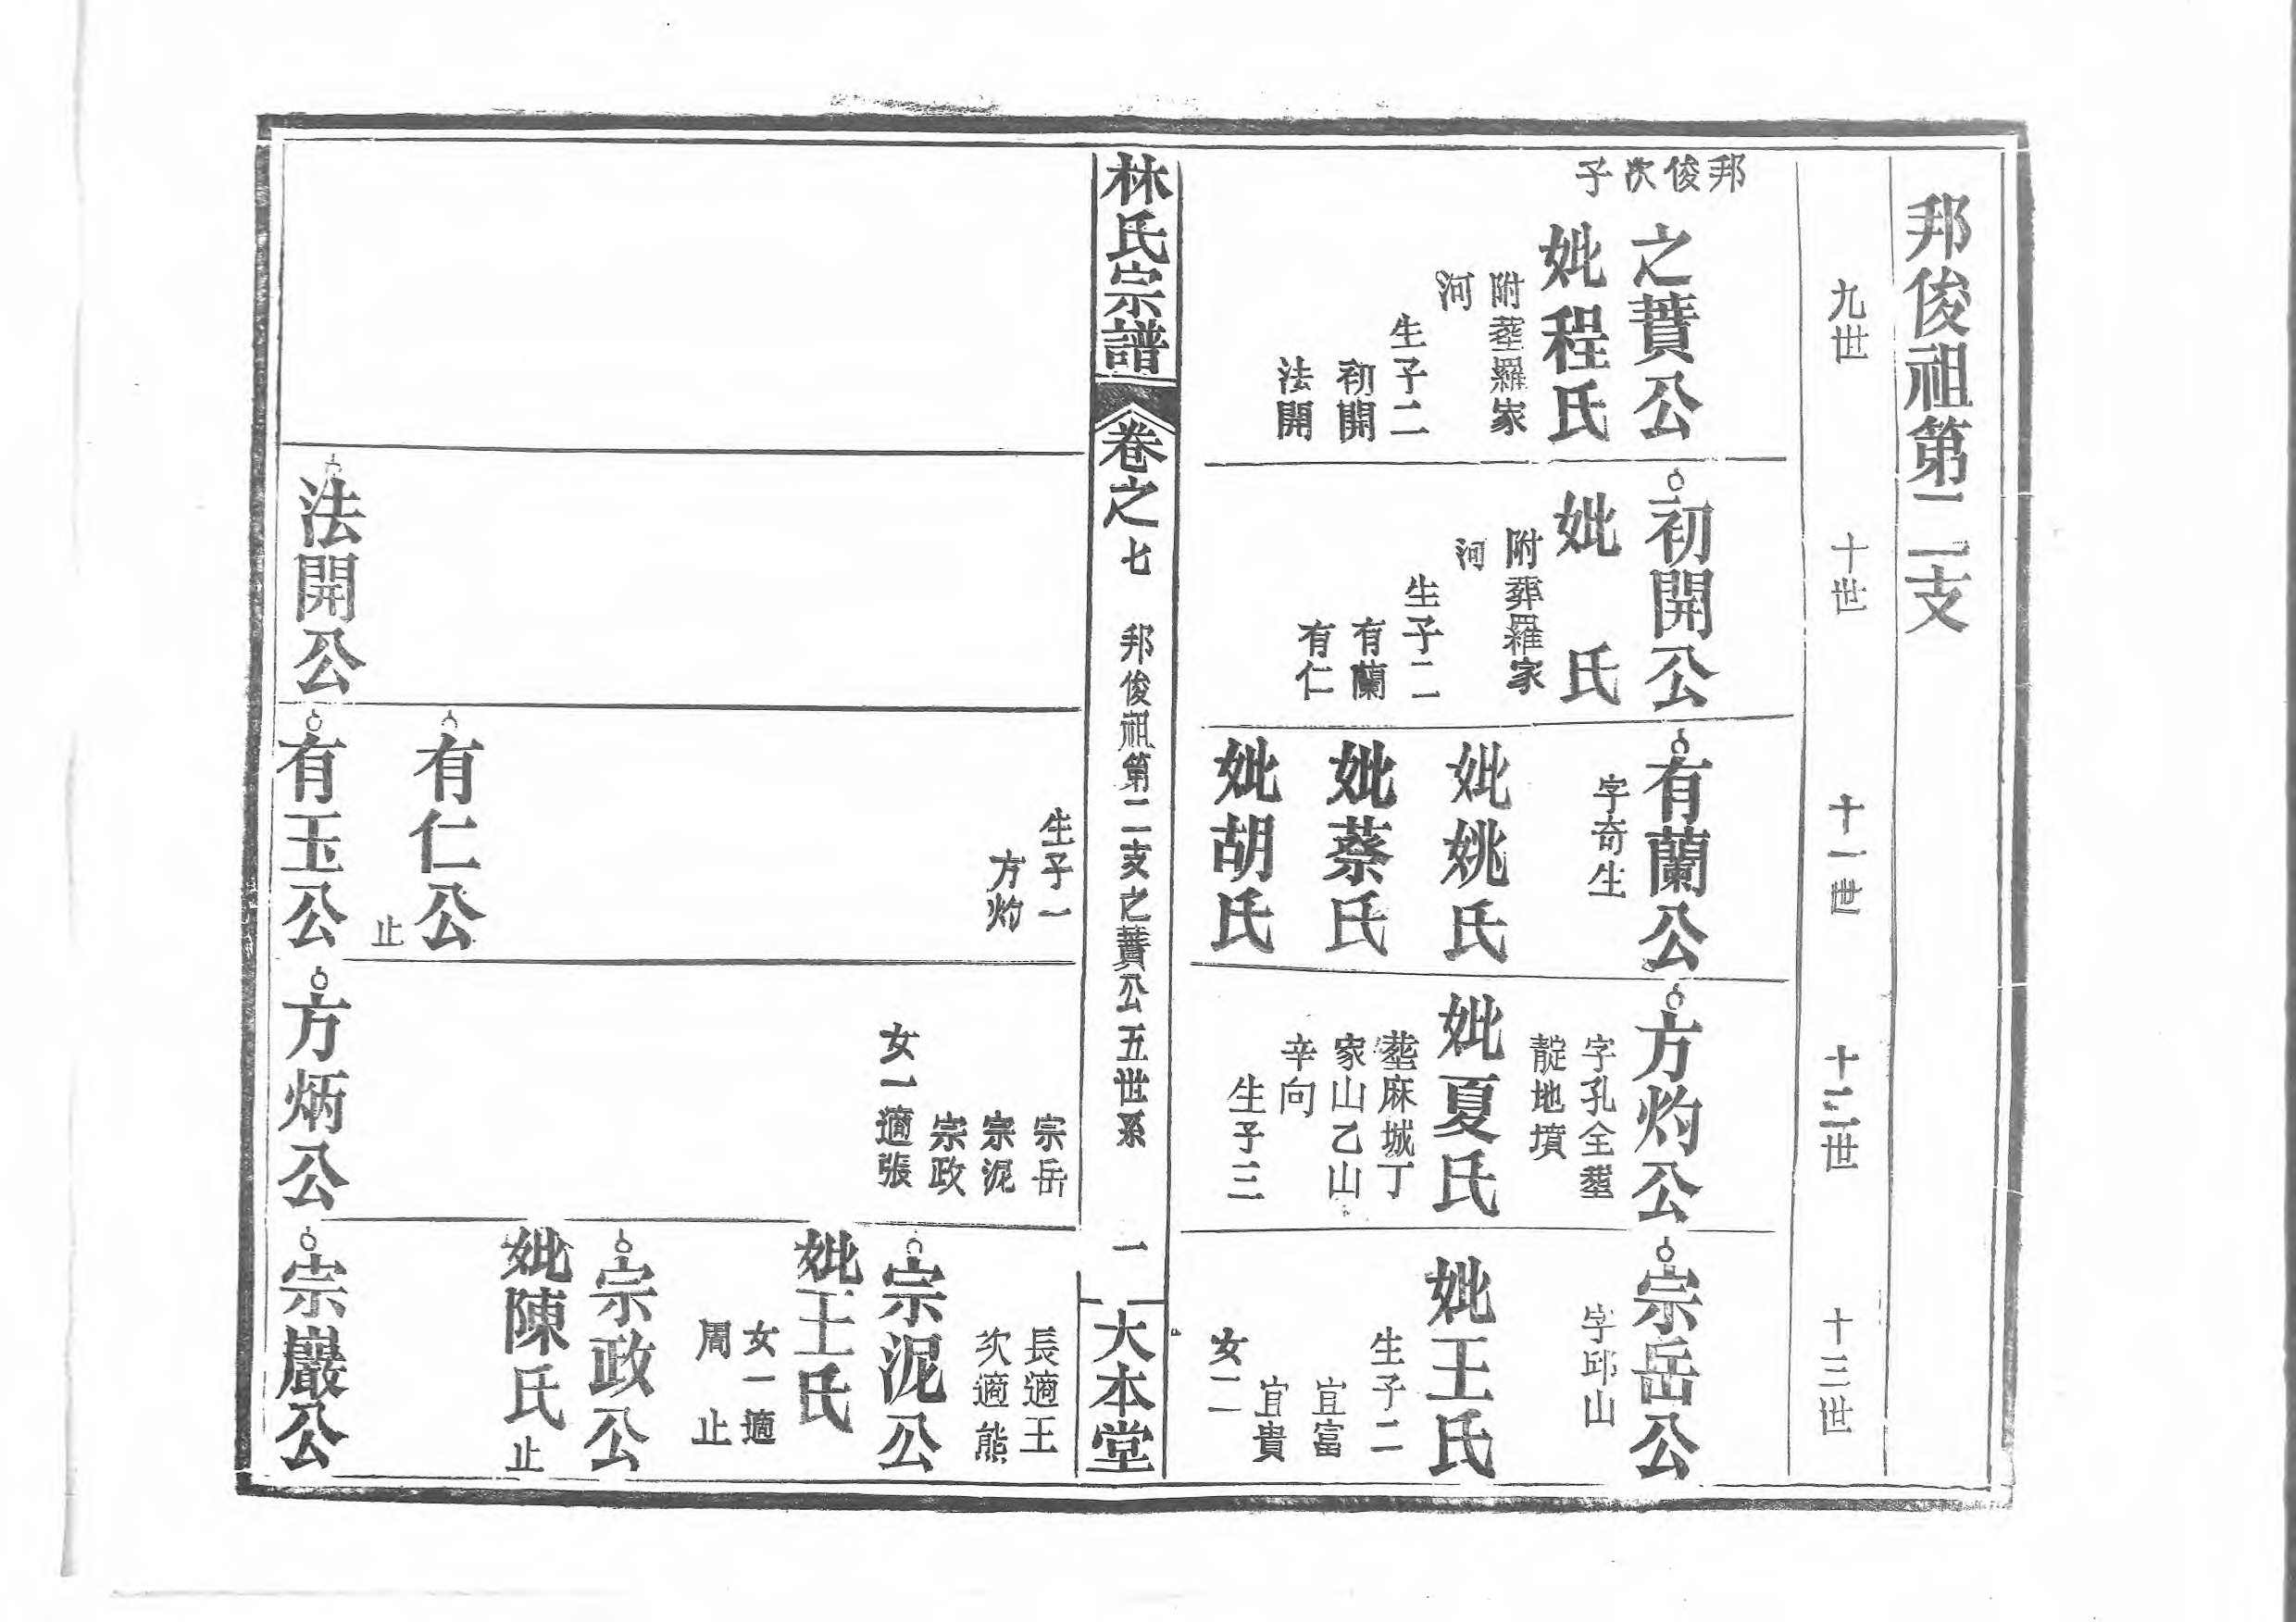 邦俊祖第二支
九世
十世
十一世
十二世
十三世
邦俊次子
之蕡公
妣程氏
附塟羅家
河
生子二
初開
法開
初開公
妣　氏
附葬羅家
河
生子二
有蘭
有仁
有蘭公
字奇生
妣姚氏
妣蔡氏
妣胡氏
方灼公
字孔全塟
靛地墳
妣夏氏
塟麻城丁
家山乙山
辛向
生子三
宗岳公
字邱山
妣王氏
生子二
宜富
宜貴
女二
林氏宗譜
卷之七
邦俊祖第二支之蕡公五世系
一
大本堂
生子一
方灼
宗岳
宗泥
宗政
女一適張
長適王
次適熊
宗泥公
妣王氏
女一適
周　止
宗政公
妣陳氏
止
有仁公
止
法開公
有玉公
方炳公
宗巖公